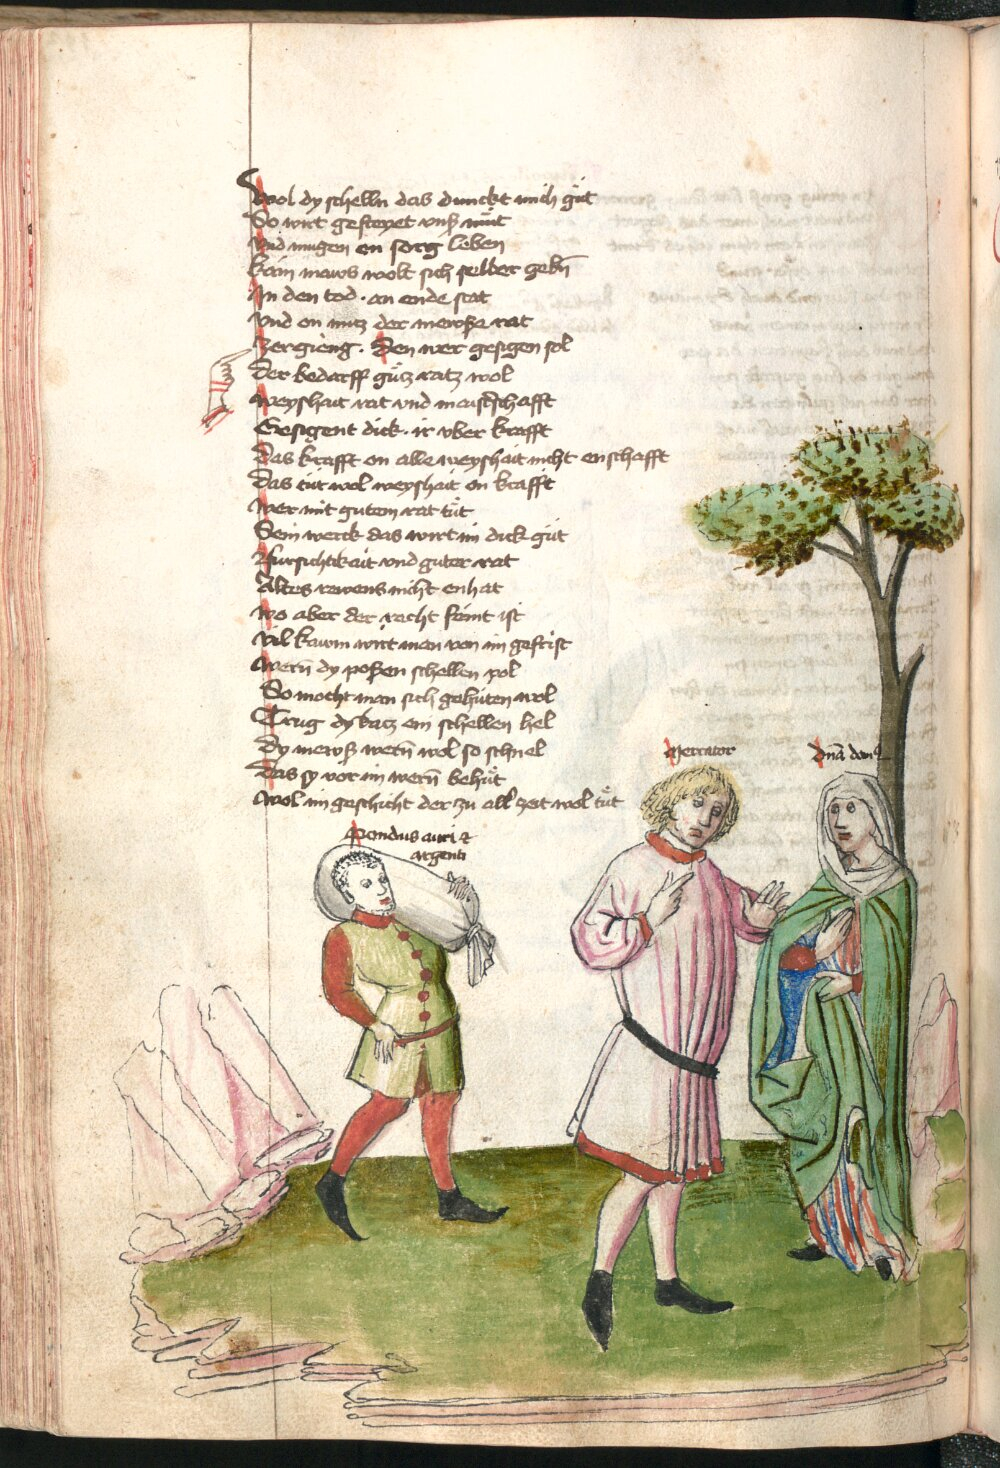 Wol dy schelln das dunckt mich gůt
So wirt gefreyet vnß můt
Vnd mugen on sorg leben
Kain maws wolt sich selber gebn̄
In den tod · an ende stat
Vnd on nutz der mewße rat
Zergieng · Den wer gesigen sol
Der bedarff gůtz ratz wol
Weyshait rat vnd maisterschafft
Gesigent dick · ir vber krafft
Das krafft on alle weyshait nicht enschafft
Das tůt wol weyshait on krafft
Wer mit gutem rat tůt
Sein werck das wirt im dick gůt
Fursichtikait vnd guter rat
Altes rewens nicht enhat
Wo aber der recht feint ist
Vil kawm wirt man von im gefrist
Wern̄ dy poßen schellen vol
So mocht man sich gehüten wol
Trug dy katz ein schellen hel
Dy mewß wern̄ wol so schnel
Das sy vor im wern̄ behůt
Wol im geschicht der zu all zeit wol tůt
Pondus auri et
argenti
Mercator
dn̄a